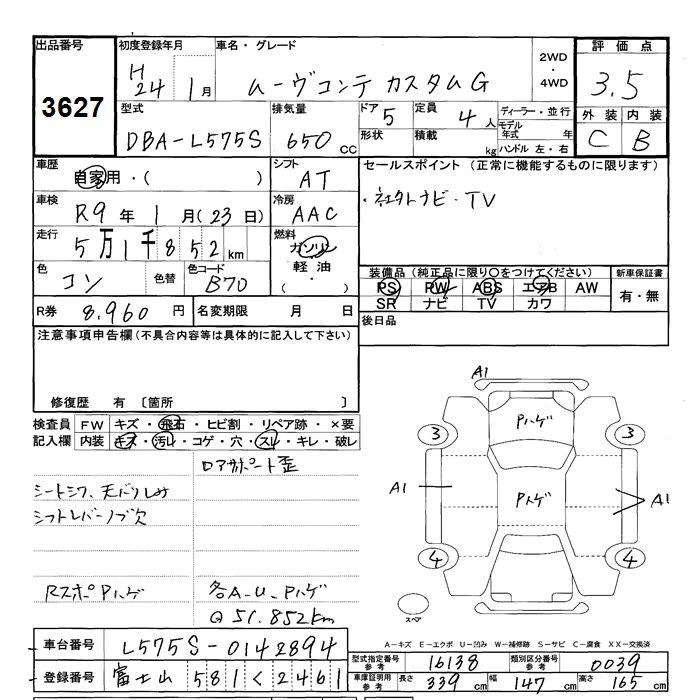 出品番号 初度登録年月 車名・グレード 評価点
3627 H24 1月 ムーヴコンテ カスタムG 2WD・4WD 3.5
型式 排気量 ドア 5 定員 4人 ディーラー・並行 外装 内装
DBA-L575S 650cc 形状 積載 kg モデル年式 年 ハンドル 左・右 C B
車歴 自家用・( ) シフト AT セールスポイント (正常に機能するものに限ります)
車検 R9年 1月(23日) 冷房 AAC ナビ・TV
走行 5万1千852km 燃料 ガソリン
軽油・( )
色 コン 色替 色コード B70 装備品 (純正品に限り○をつけてください) 新車保証書
PS PW ABS エアB AW 有・無
SR ナビ TV カワ
R券 8,960円 名変期限 月 日 後日品
注意事項申告欄 (不具合内容等は具体的に記入して下さい)
修復歴 有 〔箇所 〕
検査員記入欄 FW キズ・飛石・ヒビ割・リペア跡・×要
内装 キズ・汚レ・コゲ・穴・スレ・キレ・破レ
ロアサポート歪
シートシワ、天バリしみ
シフトレバーノブ欠
RスポPハゲ 各A-U、Pハゲ
Q 51,852km
A1
Pハゲ
3 3
A1 Pハゲ A1
4 4
スペア
A-キズ E-エクボ U-凹み W-補修跡 S-サビ C-腐食 XX-交換済
車台番号 L575S-0142894 型式指定番号 参考 16138 類別区分番号 参考 0039
登録番号 富士山 581 く 2461 車庫証明用 参考 長さ 339cm 幅 147cm 高さ 165cm